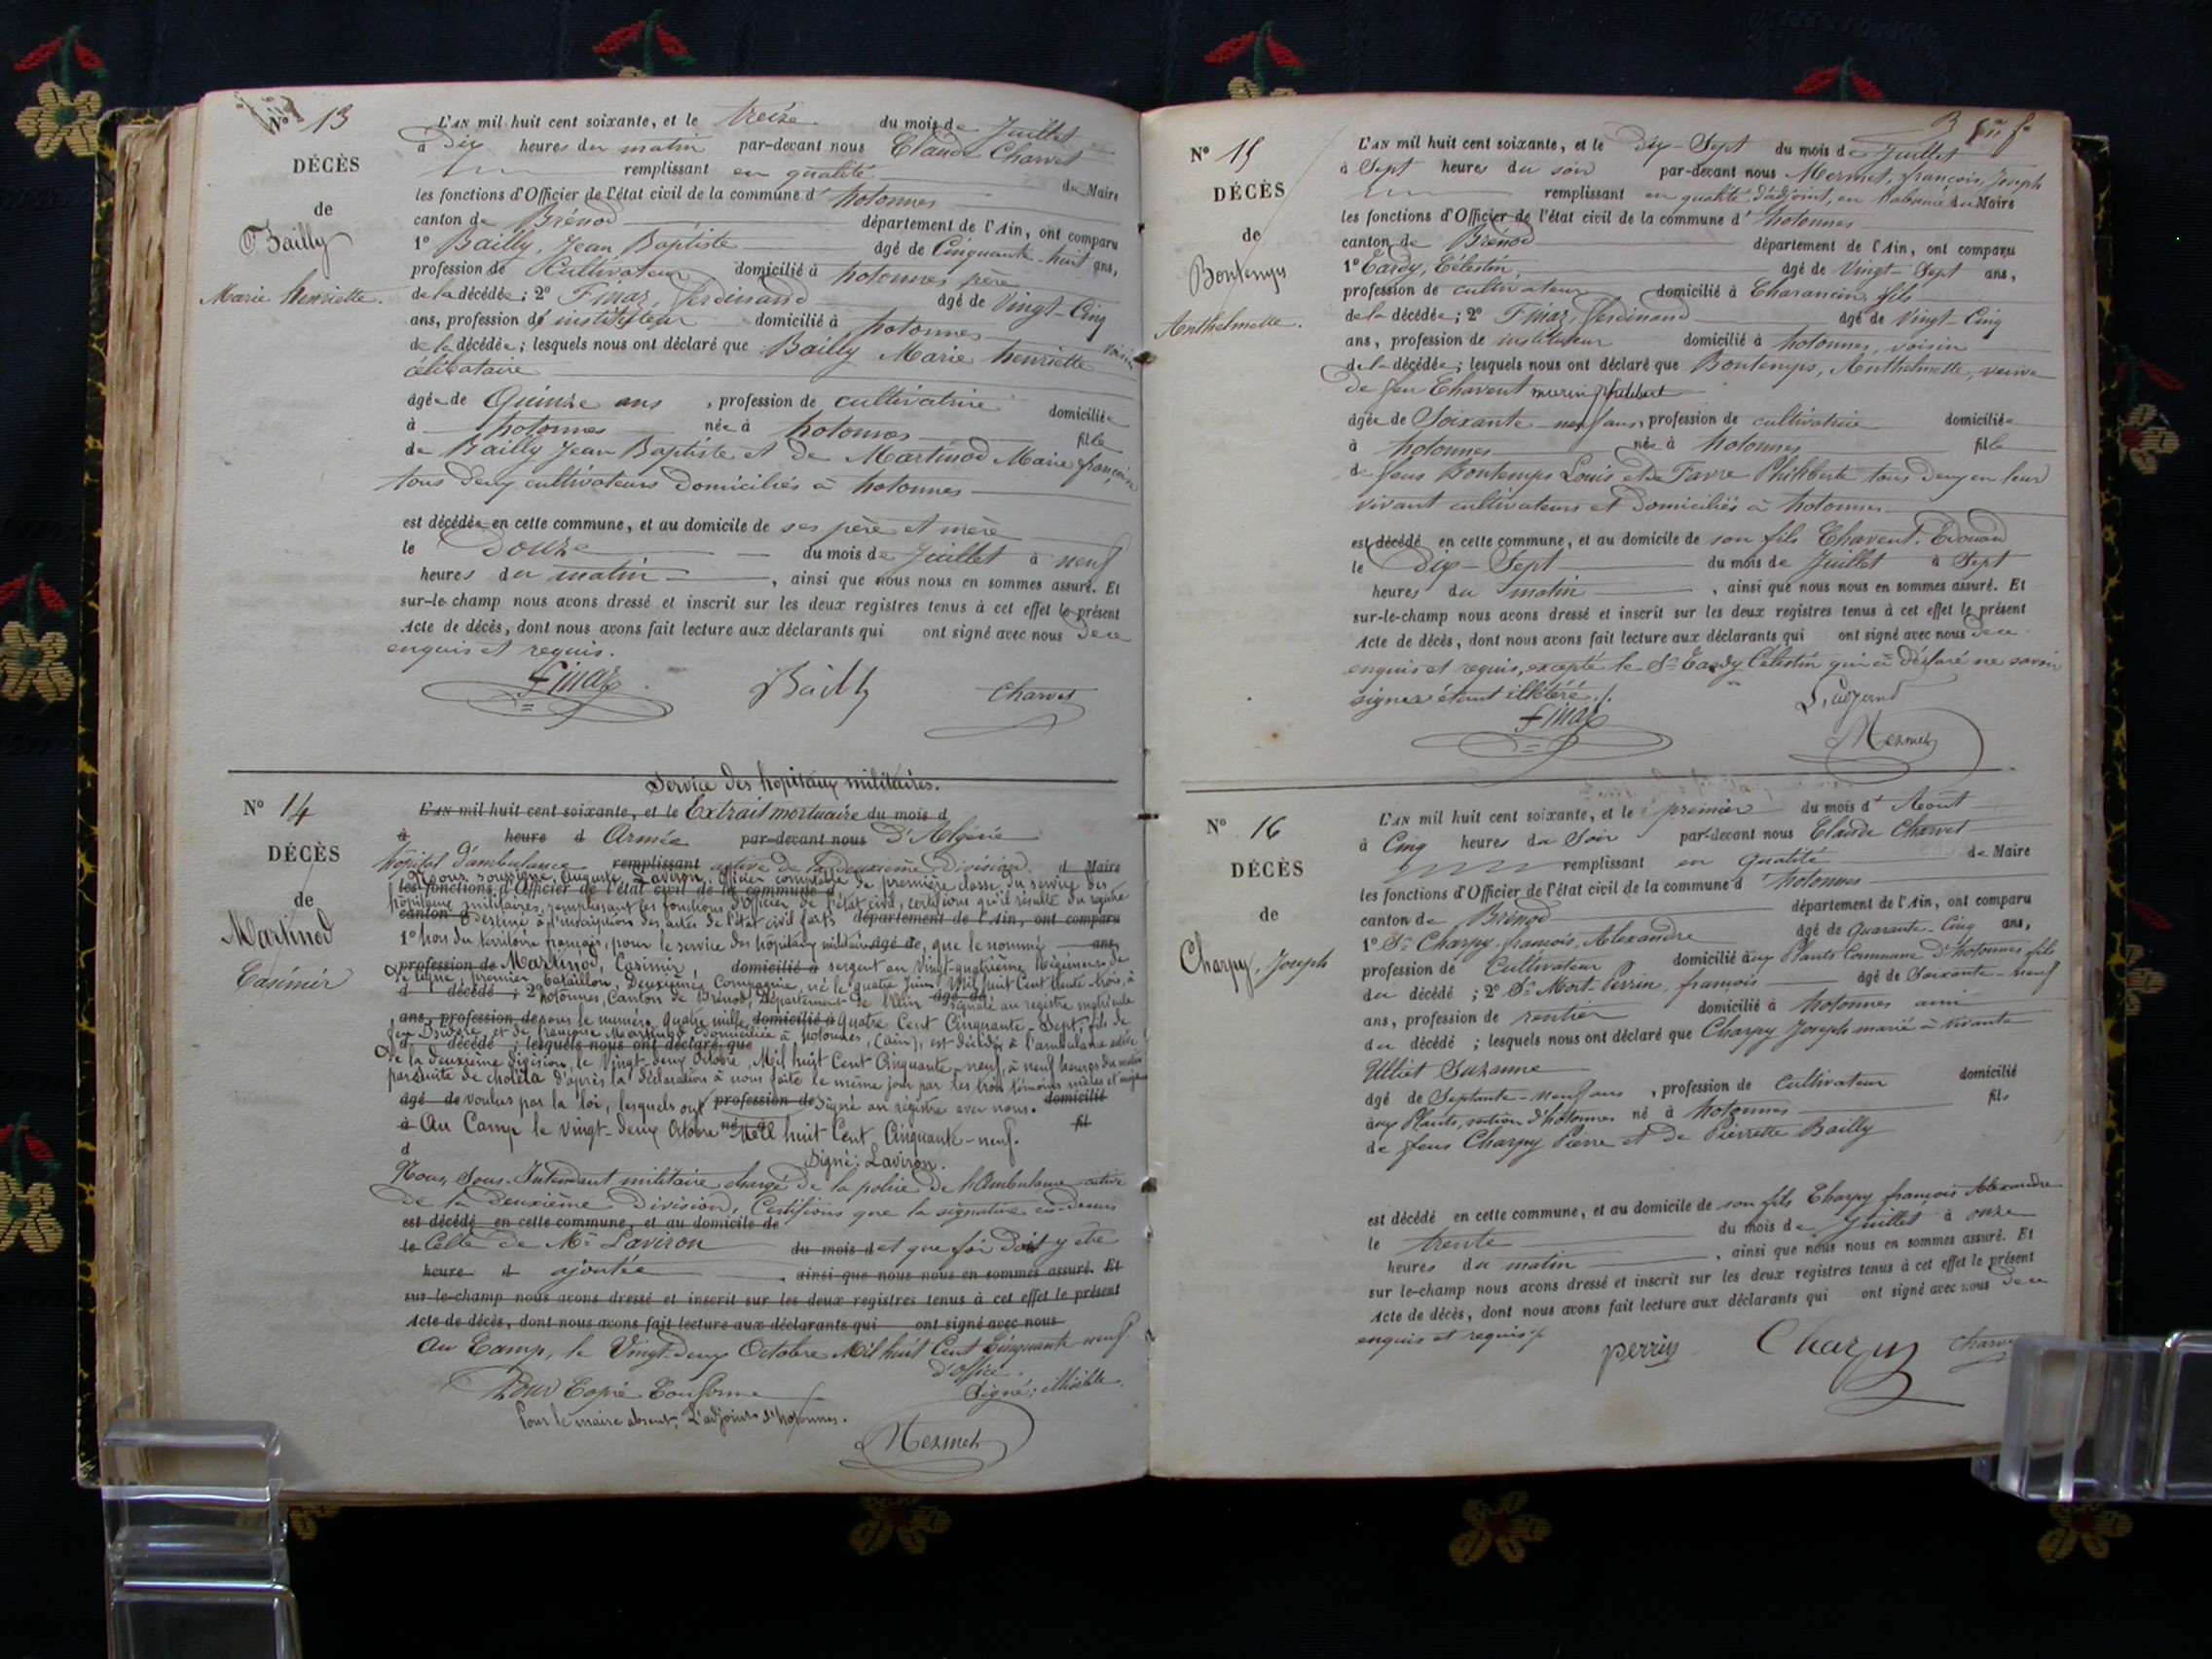 N° 13
DÉCÈS
de
Bailly
Marie henriette.
L'AN mil huit cent soixante, et le treize du mois de Juillet
à Dix heures du matin par-devant nous Claude Charvet
remplissant en qualité de Maire
les fonctions d'Officier de l'état civil de la commune d' hotonnes
canton de Brénod département de l'Ain, ont comparu
1° Bailly, Jean Baptiste âgé de Cinquante-huit ans,
profession de Cultivateur domicilié à hotonnes père
de la décédée ; 2° Finaz, ferdinand âgé de Vingt-Cinq
ans, profession d' instituteur domicilié à hotonnes voisin
de la décédée ; lesquels nous ont déclaré que Bailly Marie henriette
célibataire
âgée de Quinze ans , profession de cultivatrice domiciliée
à hotonnes née à hotonnes fille
de Bailly Jean Baptiste et de Martinod Marie françoise
tous deux cultivateurs Domiciliés à hotonnes
est décédée en cette commune, et au domicile de ses père et mère
le Douze du mois de Juillet à neuf
heures du matin , ainsi que nous nous en sommes assuré. Et
sur-le-champ nous avons dressé et inscrit sur les deux registres tenus à cet effet le présent
Acte de décès, dont nous avons fait lecture aux déclarants qui ont signé avec nous de ce
enquis et requis.
Finaz Bailly Charvet
N° 14
DÉCÈS
de
Martinod
Casimir
Service des hôpitaux militaires.
L'AN mil huit cent soixante, et le Extrait mortuaire du mois d
à heure d Armée par-devant nous D'Algérie
hôpital d'ambulance remplissant active de la deuxième Division. d Maire
Nous soussigné, Auguste Laviron, officier comptable de première classe du service des
les fonctions d'Officier de l'état civil de la commune d
hôpitaux militaires, remplissant les fonctions d'officier de l'état civil, certifions qu'il résulte du registre
canton d destiné à l'inscription des actes de l'état civil faits département de l'Ain, ont comparu
1° hors du territoire français, pour le service des hôpitaux militaires âgé de, que le nommé ans,
profession de Martinod, Casimir, domicilié à sergent au vingt-quatrième Régiment de
ligne, premier bataillon, Deuxième Compagnie, né le quatre Juin Mil huit Cent trente trois, à
d décédé ; 2° hotonnes, Canton de Brénod, Département de l'Ain âgé de signalé au registre matricule
ans, profession de sous le numéro quatre mille domicilié à quatre Cent Cinquante-Sept, fils de
feu et de françoise Martinod domiciliée à hotonnes, (Ain), est décédé à l'ambulance active
d décédé ; lesquels nous ont déclaré que
de la deuxième division, le Vingt-deux Octobre, Mil huit Cent Cinquante-neuf, à neuf heures du matin
par suite de choléra d'après la déclaration à nous faite le même jour par les trois témoins mâles et majeurs
âgé de voulus par la loi, lesquels ont profession de signé au registre avec nous. domicilié
à Au Camp le vingt-deux Octobre né à Mil huit Cent Cinquante-neuf. fil
d
Signé : Laviron.
Nous Sous-Intendant militaire chargé de la police de l'Ambulance active
de la deuxième Division, Certifions que la signature ci-dessus
est décédé en cette commune, et au domicile de
le Celle de Mr Laviron du mois d et que foi doit y être
heure d ajoutée , ainsi que nous nous en sommes assuré. Et
sur-le-champ nous avons dressé et inscrit sur les deux registres tenus à cet effet le présent
Acte de décès, dont nous avons fait lecture aux déclarants qui ont signé avec nous
Au Camp, le Vingt-Deux Octobre Mil huit Cent Cinquante-neuf
d'office.
Signé : illisible.
Pour Copie Conforme
Pour le maire absent, L'adjoint d'hotonnes.
Mermet
N° 15
DÉCÈS
de
Bontemps
Anthelmette.
L'AN mil huit cent soixante, et le Dix-Sept du mois de Juillet
à Sept heures du soir par-devant nous Mermet, françois, Joseph
remplissant en qualité d'adjoint, en l'absence du Maire
les fonctions d'Officier de l'état civil de la commune d' hotonnes
canton de Brénod département de l'Ain, ont comparu
1° Tardy, Célestin, âgé de Vingt-Sept ans,
profession de cultivateur domicilié à Charancin, fils
de la décédée ; 2° Finaz, ferdinand âgé de Vingt-Cinq
ans, profession de instituteur domicilié à hotonnes, voisin
de la décédée ; lesquels nous ont déclaré que Bontemps, Anthelmette, veuve
de feu Chavent philibert
âgée de Soixante-neuf ans, profession de cultivatrice domiciliée
à hotonnes née à hotonnes fille
de feus Bontemps Louis et de Favre Philiberte tous deux en leur
vivant cultivateurs et Domiciliés à hotonnes
est décédé en cette commune, et au domicile de son fils Chavent Edouard
le Dix-Sept du mois de Juillet à Sept
heures du matin , ainsi que nous nous en sommes assuré. Et
sur-le-champ nous avons dressé et inscrit sur les deux registres tenus à cet effet le présent
Acte de décès, dont nous avons fait lecture aux déclarants qui ont signé avec nous de ce
enquis et requis, excepté le Sr Tardy Célestin qui a déclaré ne savoir
signer étant illétéré./.
Finaz
Mermet
N° 16
DÉCÈS
de
Charpy, Joseph
L'AN mil huit cent soixante, et le premier du mois d' Août
à Cinq heures du Soir par-devant nous Claude Charvet
remplissant en qualité de Maire
les fonctions d'Officier de l'état civil de la commune d' hotonnes
canton de Brénod département de l'Ain, ont comparu
1° Sr Charpy, françois, Alexandre âgé de Quarante-Cinq ans,
profession de Cultivateur domicilié aux Plants Commune d'hotonnes fils
du décédé ; 2° Sr Mort-Perrin, françois âgé de Soixante-neuf
ans, profession de rentier domicilié à hotonnes ami
du décédé ; lesquels nous ont déclaré que Charpy Joseph marié à vivante
Ulliet Suzanne
âgé de Septante-neuf ans , profession de Cultivateur domicilié
aux Plants, section d'hotonnes né à hotonnes fils
de feus Charpy Pierre et de Pierrette Bailly
est décédé en cette commune, et au domicile de son fils Charpy françois Alexandre
le trente du mois de Juillet à onze
heures du matin , ainsi que nous nous en sommes assuré. Et
sur-le-champ nous avons dressé et inscrit sur les deux registres tenus à cet effet le présent
Acte de décès, dont nous avons fait lecture aux déclarants qui ont signé avec nous de ce
enquis et requis./.
perrin Charpy Charvet